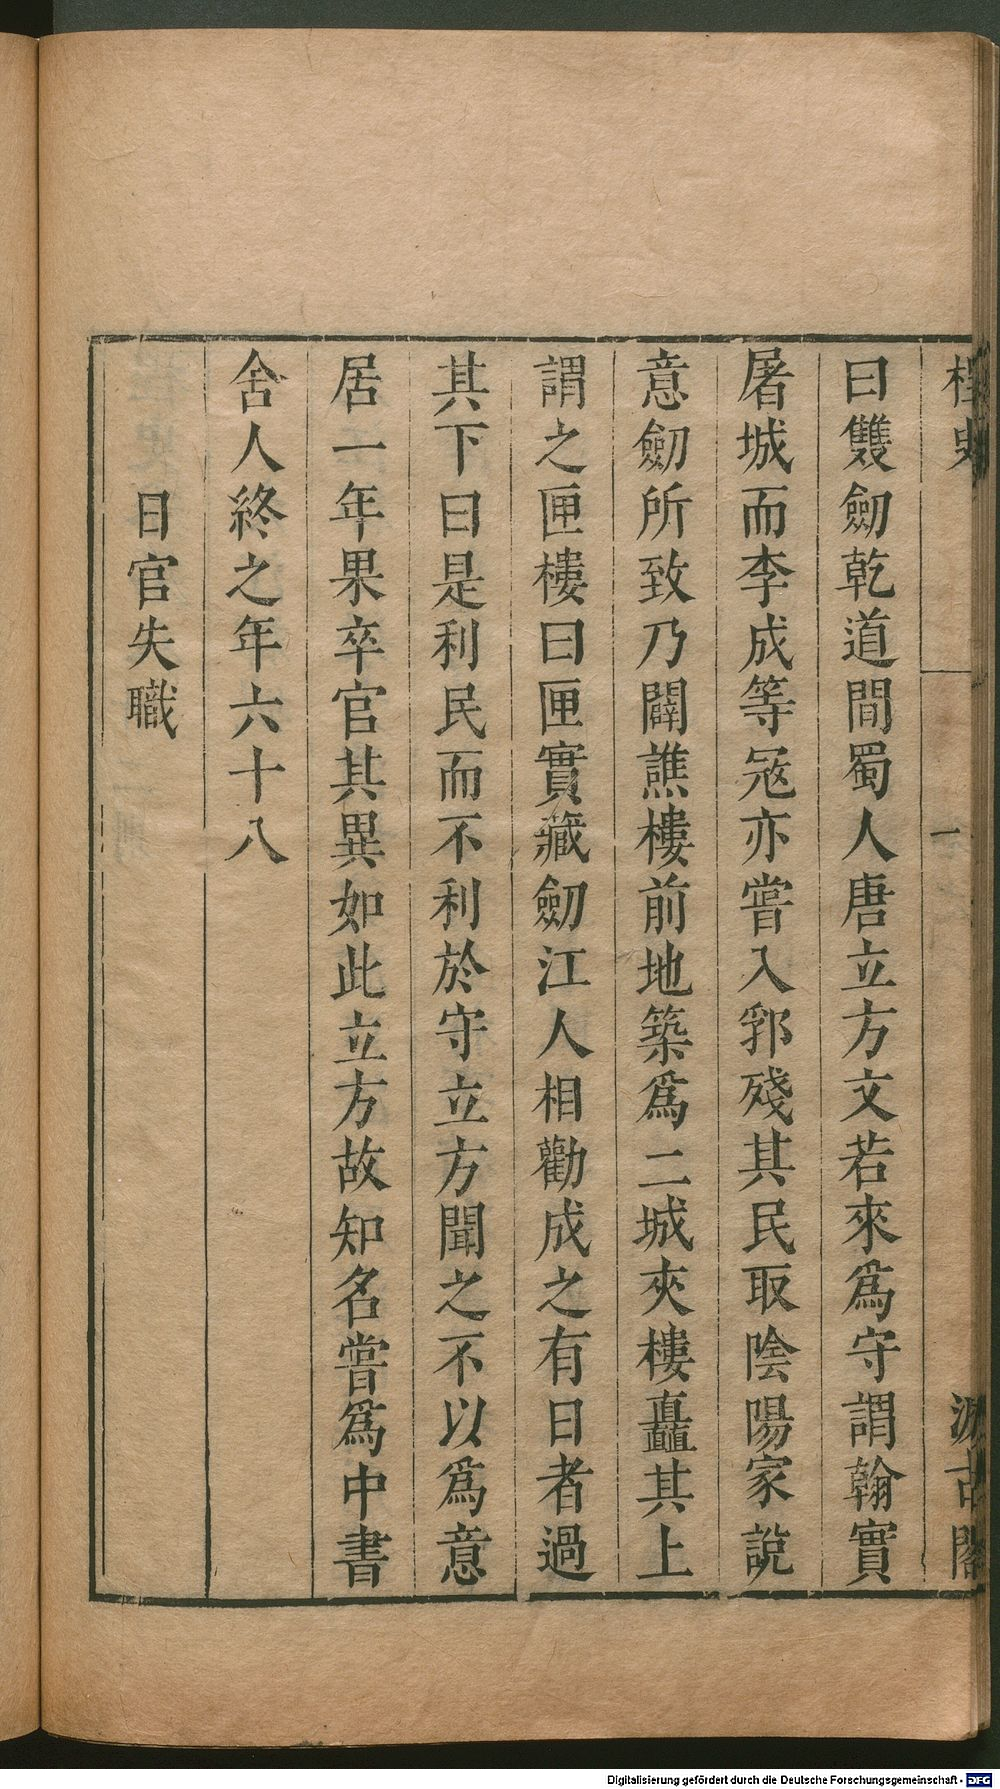 桯史
一
汲古閣
曰雙劒乾道間蜀人唐立方文若來爲守謂翰實
屠城而李成等冦亦嘗入郛殘其民取陰陽家說
意劒所致乃闢譙樓前地築爲二城夾樓矗其上
謂之匣樓曰匣實藏劒江人相勸成之有日者過
其下曰是利民而不利於守立方聞之不以爲意
居一年果卒官其異如此立方故知名嘗爲中書
舍人終之年六十八
日官失職
Digitalisierung gefördert durch die Deutsche Forschungsgemeinschaft - DFG